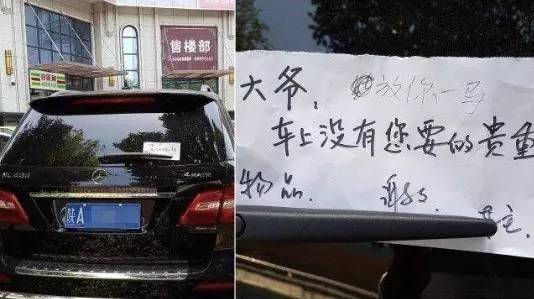 售楼部
ML 400
4MATIC
陕A
大爷,
放你一马
车上没有您要的贵重
物品.
谢谢